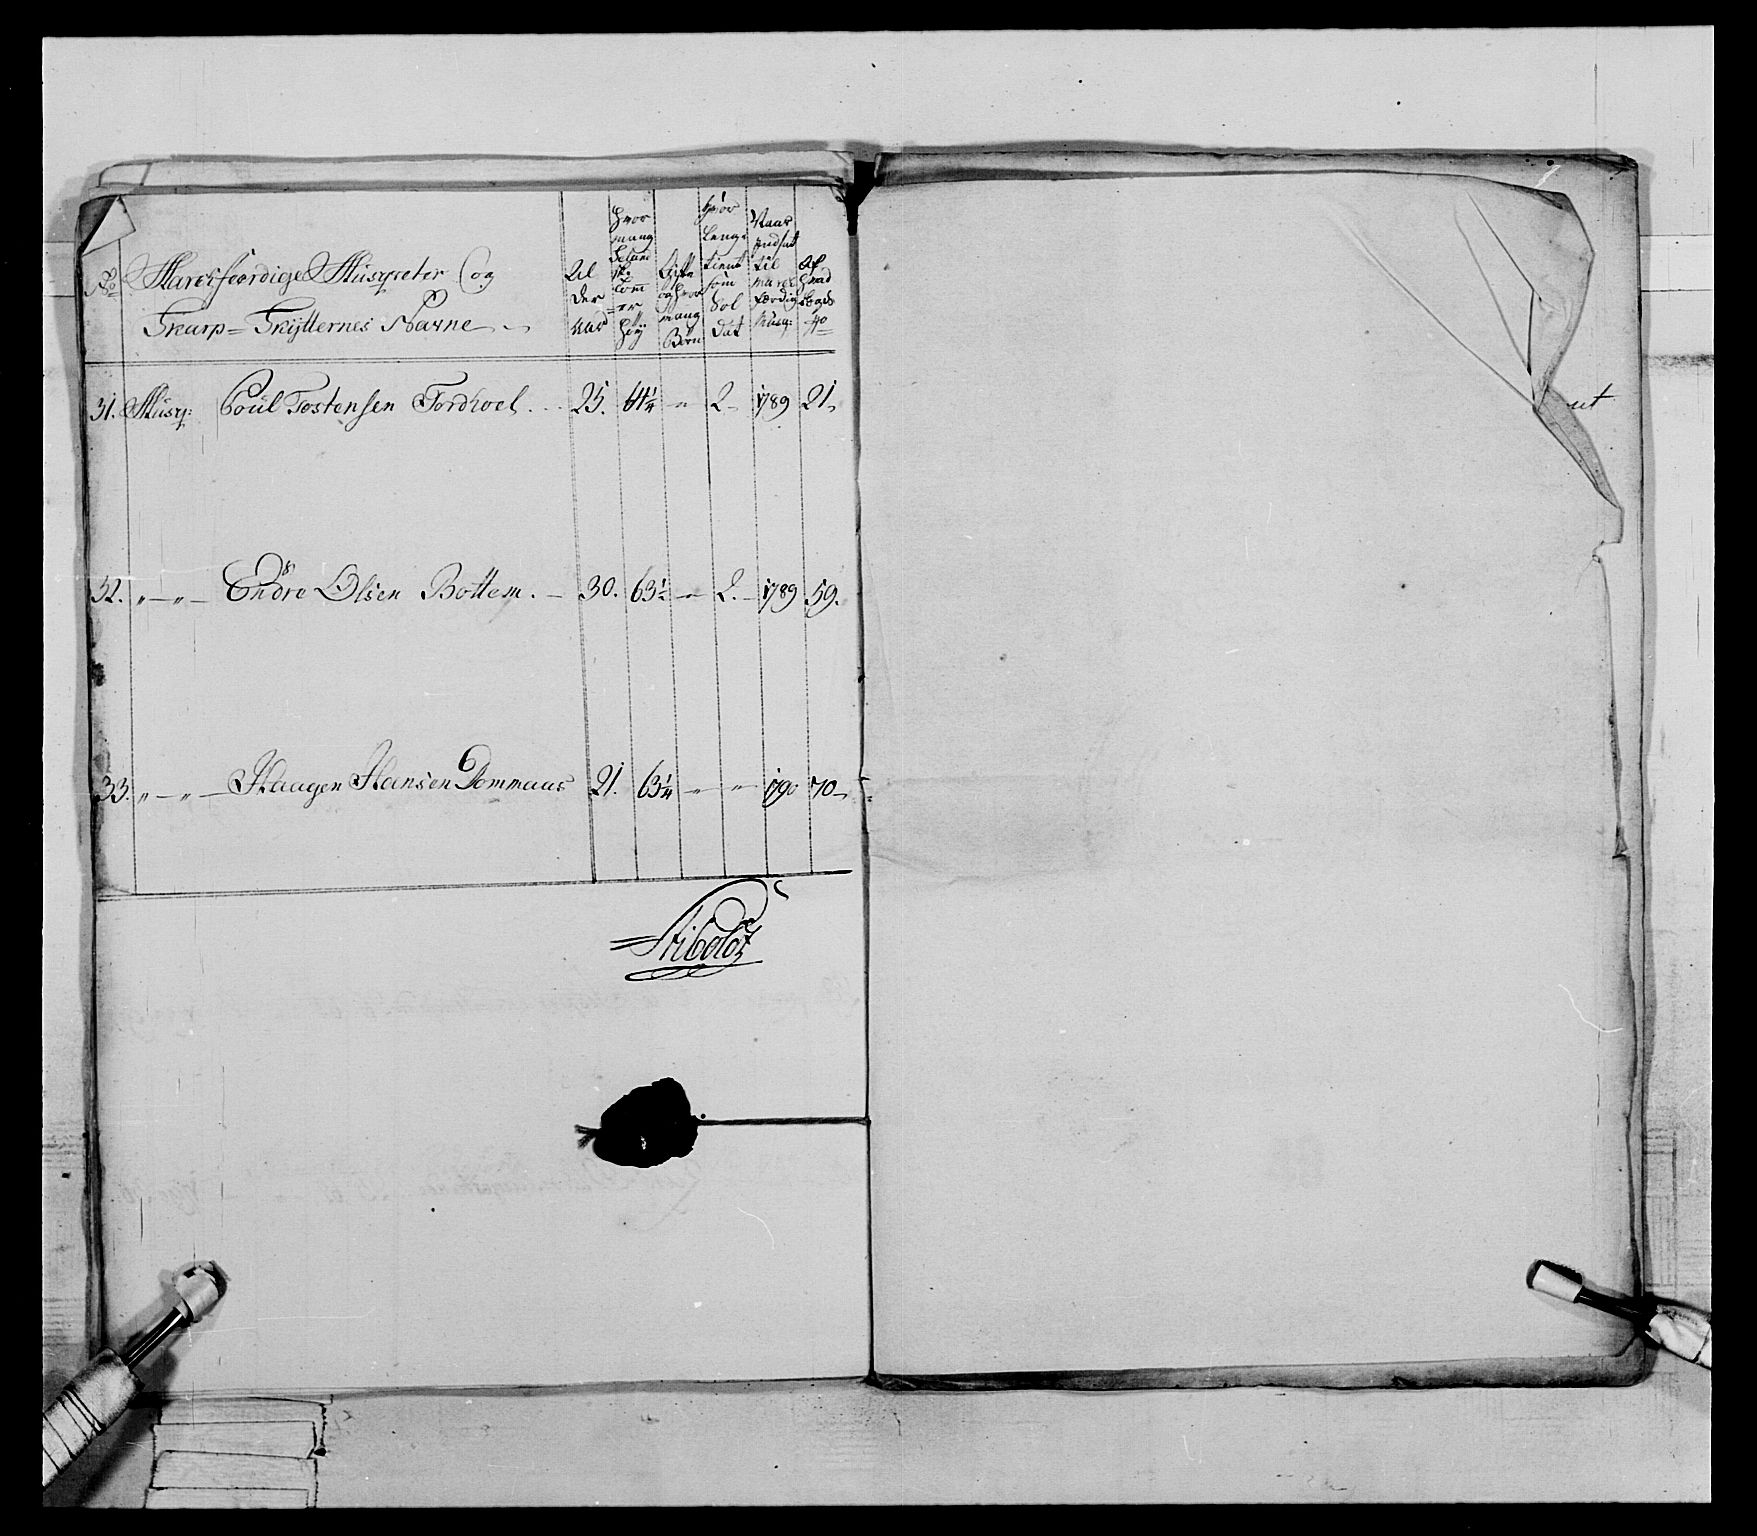 No Marchfærdige Musqveter Og
Skarp=Skÿtternes Navne
Al
der
aar
Hvor
mang
Seland
ske
Tom
er
Høÿ
Gifte
og hvor
mang
Børn
Hvor
Længe
tient
som
Sol
dat
Naar
Indsat
til
March
færdig
Musq:
Af
hvad
Lægds
No
31. Musq: Poul Tostensen Tordhoel . . 25. 64¼ " 2 1789 21
32. " " Endre Olsen Bottem. 30. 63½ " 2. 1789 59.
33. " " Haagen Hansen Dommaas 21. 63¼ " " 1790 70
Stiboldt
ut